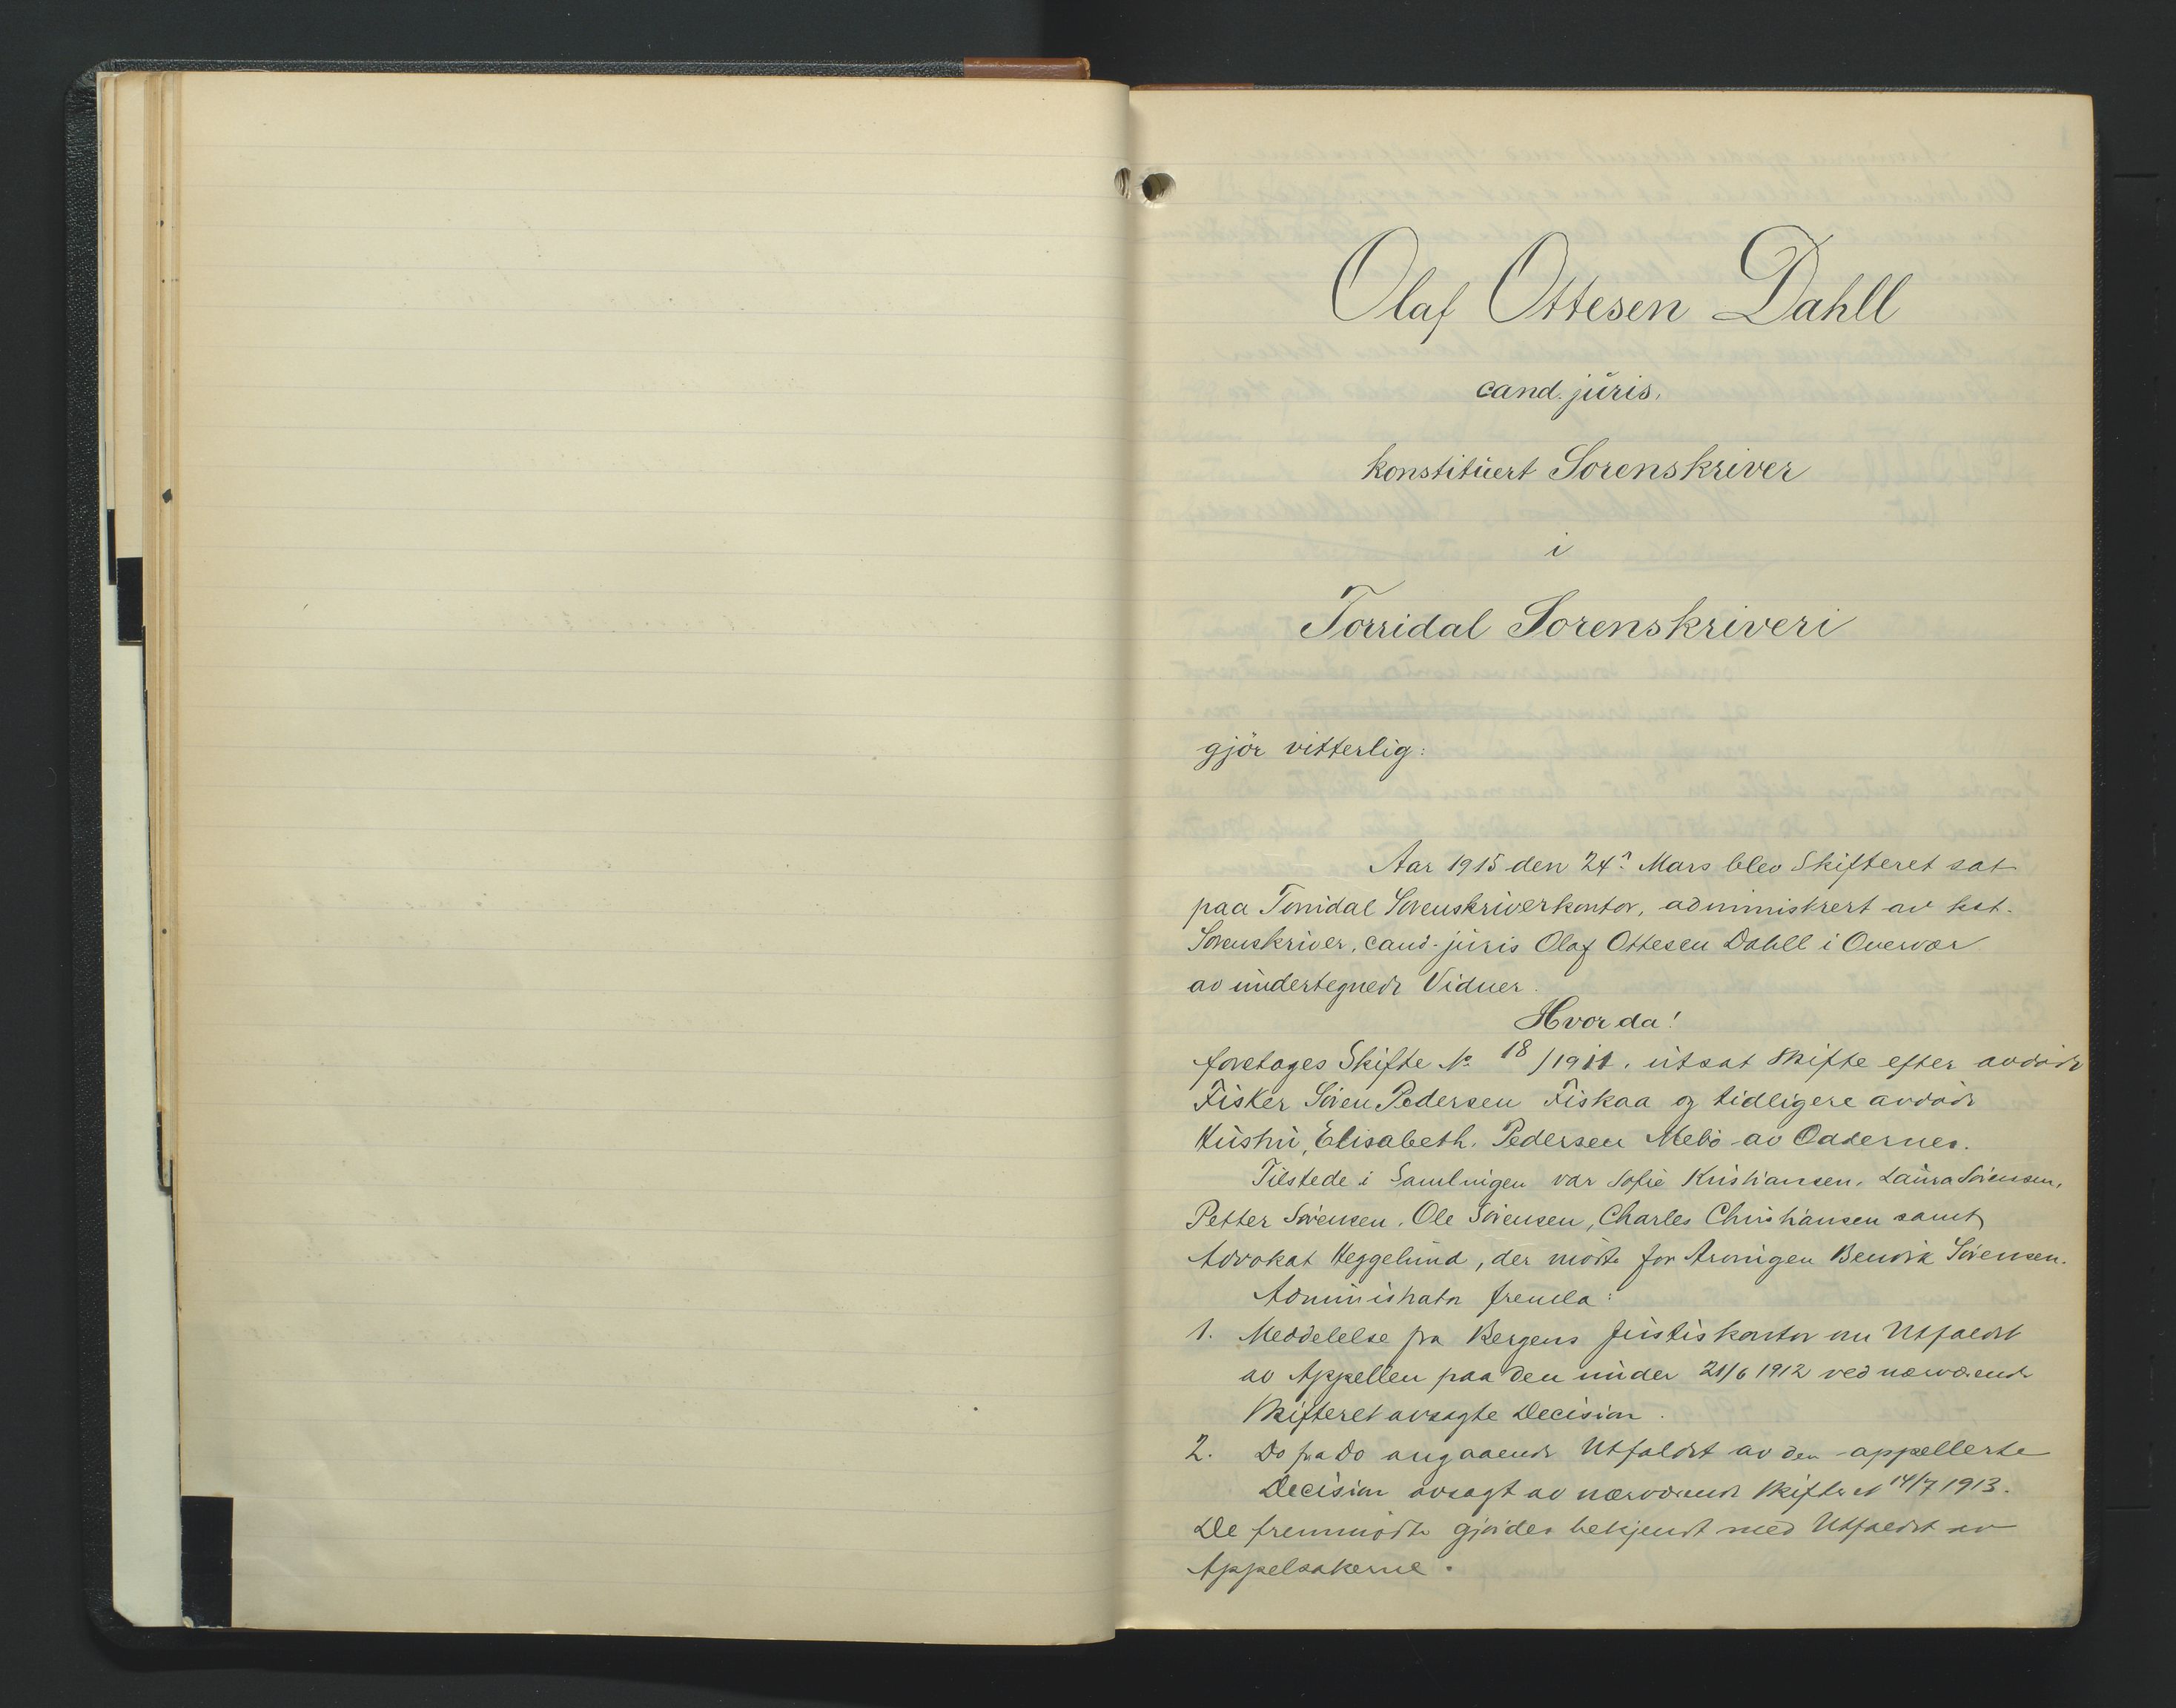 Olaf Ottesen Dahll
cand. juris.
konstituert Sorenskriver
i
Torridal Sorenskriveri
gjör vitterlig:
Aar 1915 den 24? Mars blev Skifteret sat
paa Torridal Sorenskriverkontor, administrert av kst.
Sorenskriver, cand. juris Olaf Ottesen Dahll i Overvær
av undertegnede Vidner.
Hvor da!
foretoges Skifte No 18/1911. utsat Skifte efter avdöde
Fisker Sören Pedersen Fiskaa og tidligere avdöde
Hustru, Elisabeth Pedersen Mebö av Oddernes.
Tilstede i Samlingen var Sofie Kristiansen, Laura Sörensen,
Petter Sörensen, Ole Sörensen, Charles Christiansen samt
Advokat Heggelund, der mötte for Arvingen Bendik Sörensen.
Administrator fremla:
1. Meddelelse fra Bergens Justiskontor om Utfaldet
av Appellen paa den under 21/6 1912 ved nærværende
Skifteret avsagte Decision.
2. Do fra Do angaaende Utfaldet av den appellerte
Decision avsagt av nærværende Skifteret 14/7 1913.
De fremmödte gjordes bekjendt med Utfaldet av
Appelsakerne.